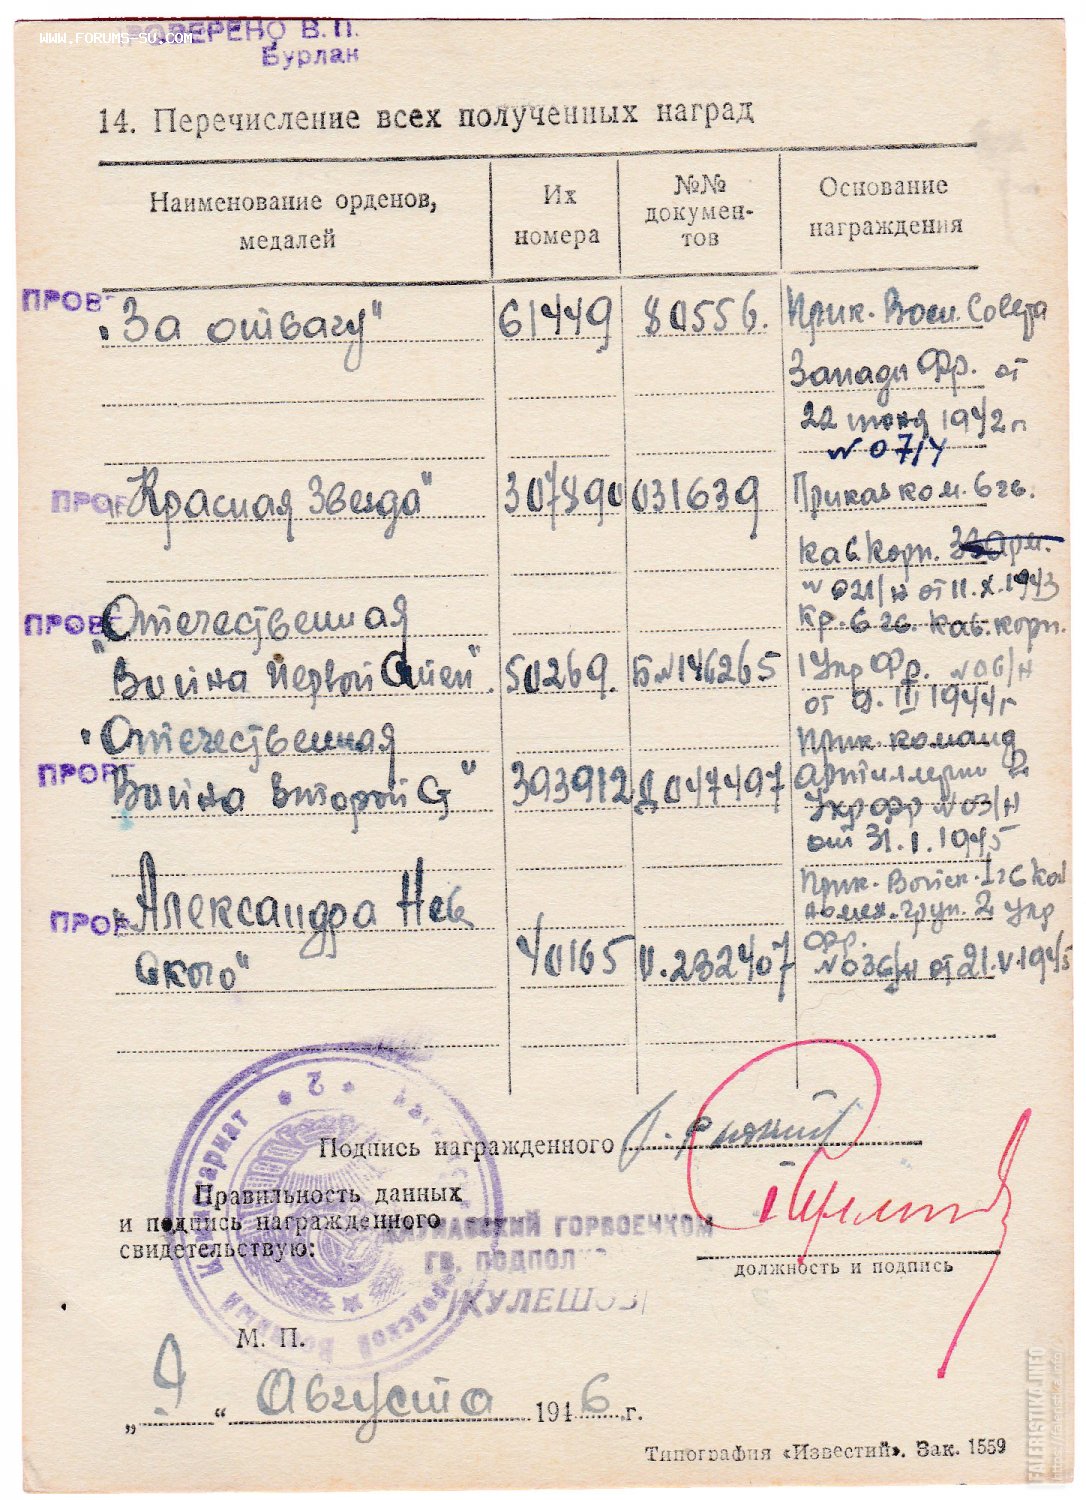 WWW.FORUMS-SU.COM
РОВЕРЕНО В. П.
Бурлан
14. Перечисление всех полученных наград
Наименование орденов, медалей
Их номера
№№ докумен-тов
Основание награждения
ПРОВ
„За отвагу" 61449 80556. Прик. Воен. Совета
Западн Фр. от
22 июня 1942 г
№ 07/4
ПРОВ
"Красная Звезда" 307890 031639 Приказ ком. 6 гв.
кав. корп. 33 Арм.
№ 021/н от 11.X.1943
"Отечественная Кр. 6 гв. кав. корп.
ПРОВЕ
Война Первой Степ". 50269. Б №146265 1 Укр Фр. №06/н
от 9. III 1944 г
"Отечественная Прик. команд
ПРОВЕ
Война второй С" 393912 Д 047497 артиллерии 2
Укр Фр №03/н
от 31.1.1945
"Александра Нев Прик. Войск. 1 гв Кон
ПРОВ
но мех. груп. 2 Укр
ского" 40165 232407 Фр.
№036/н от 21.V.1945
Подпись награжденного
Правильность данных
и подпись награженного
свидетельствую:
ГОРВОЕНКОМ
ГВ. ПОДПОЛ
/КУЛЕШОВ/
должность и подпись
М. П.
„9“ Августа 1946 г.
Типография «Известий». Зак. 1559
FALERISTIKA.INFO